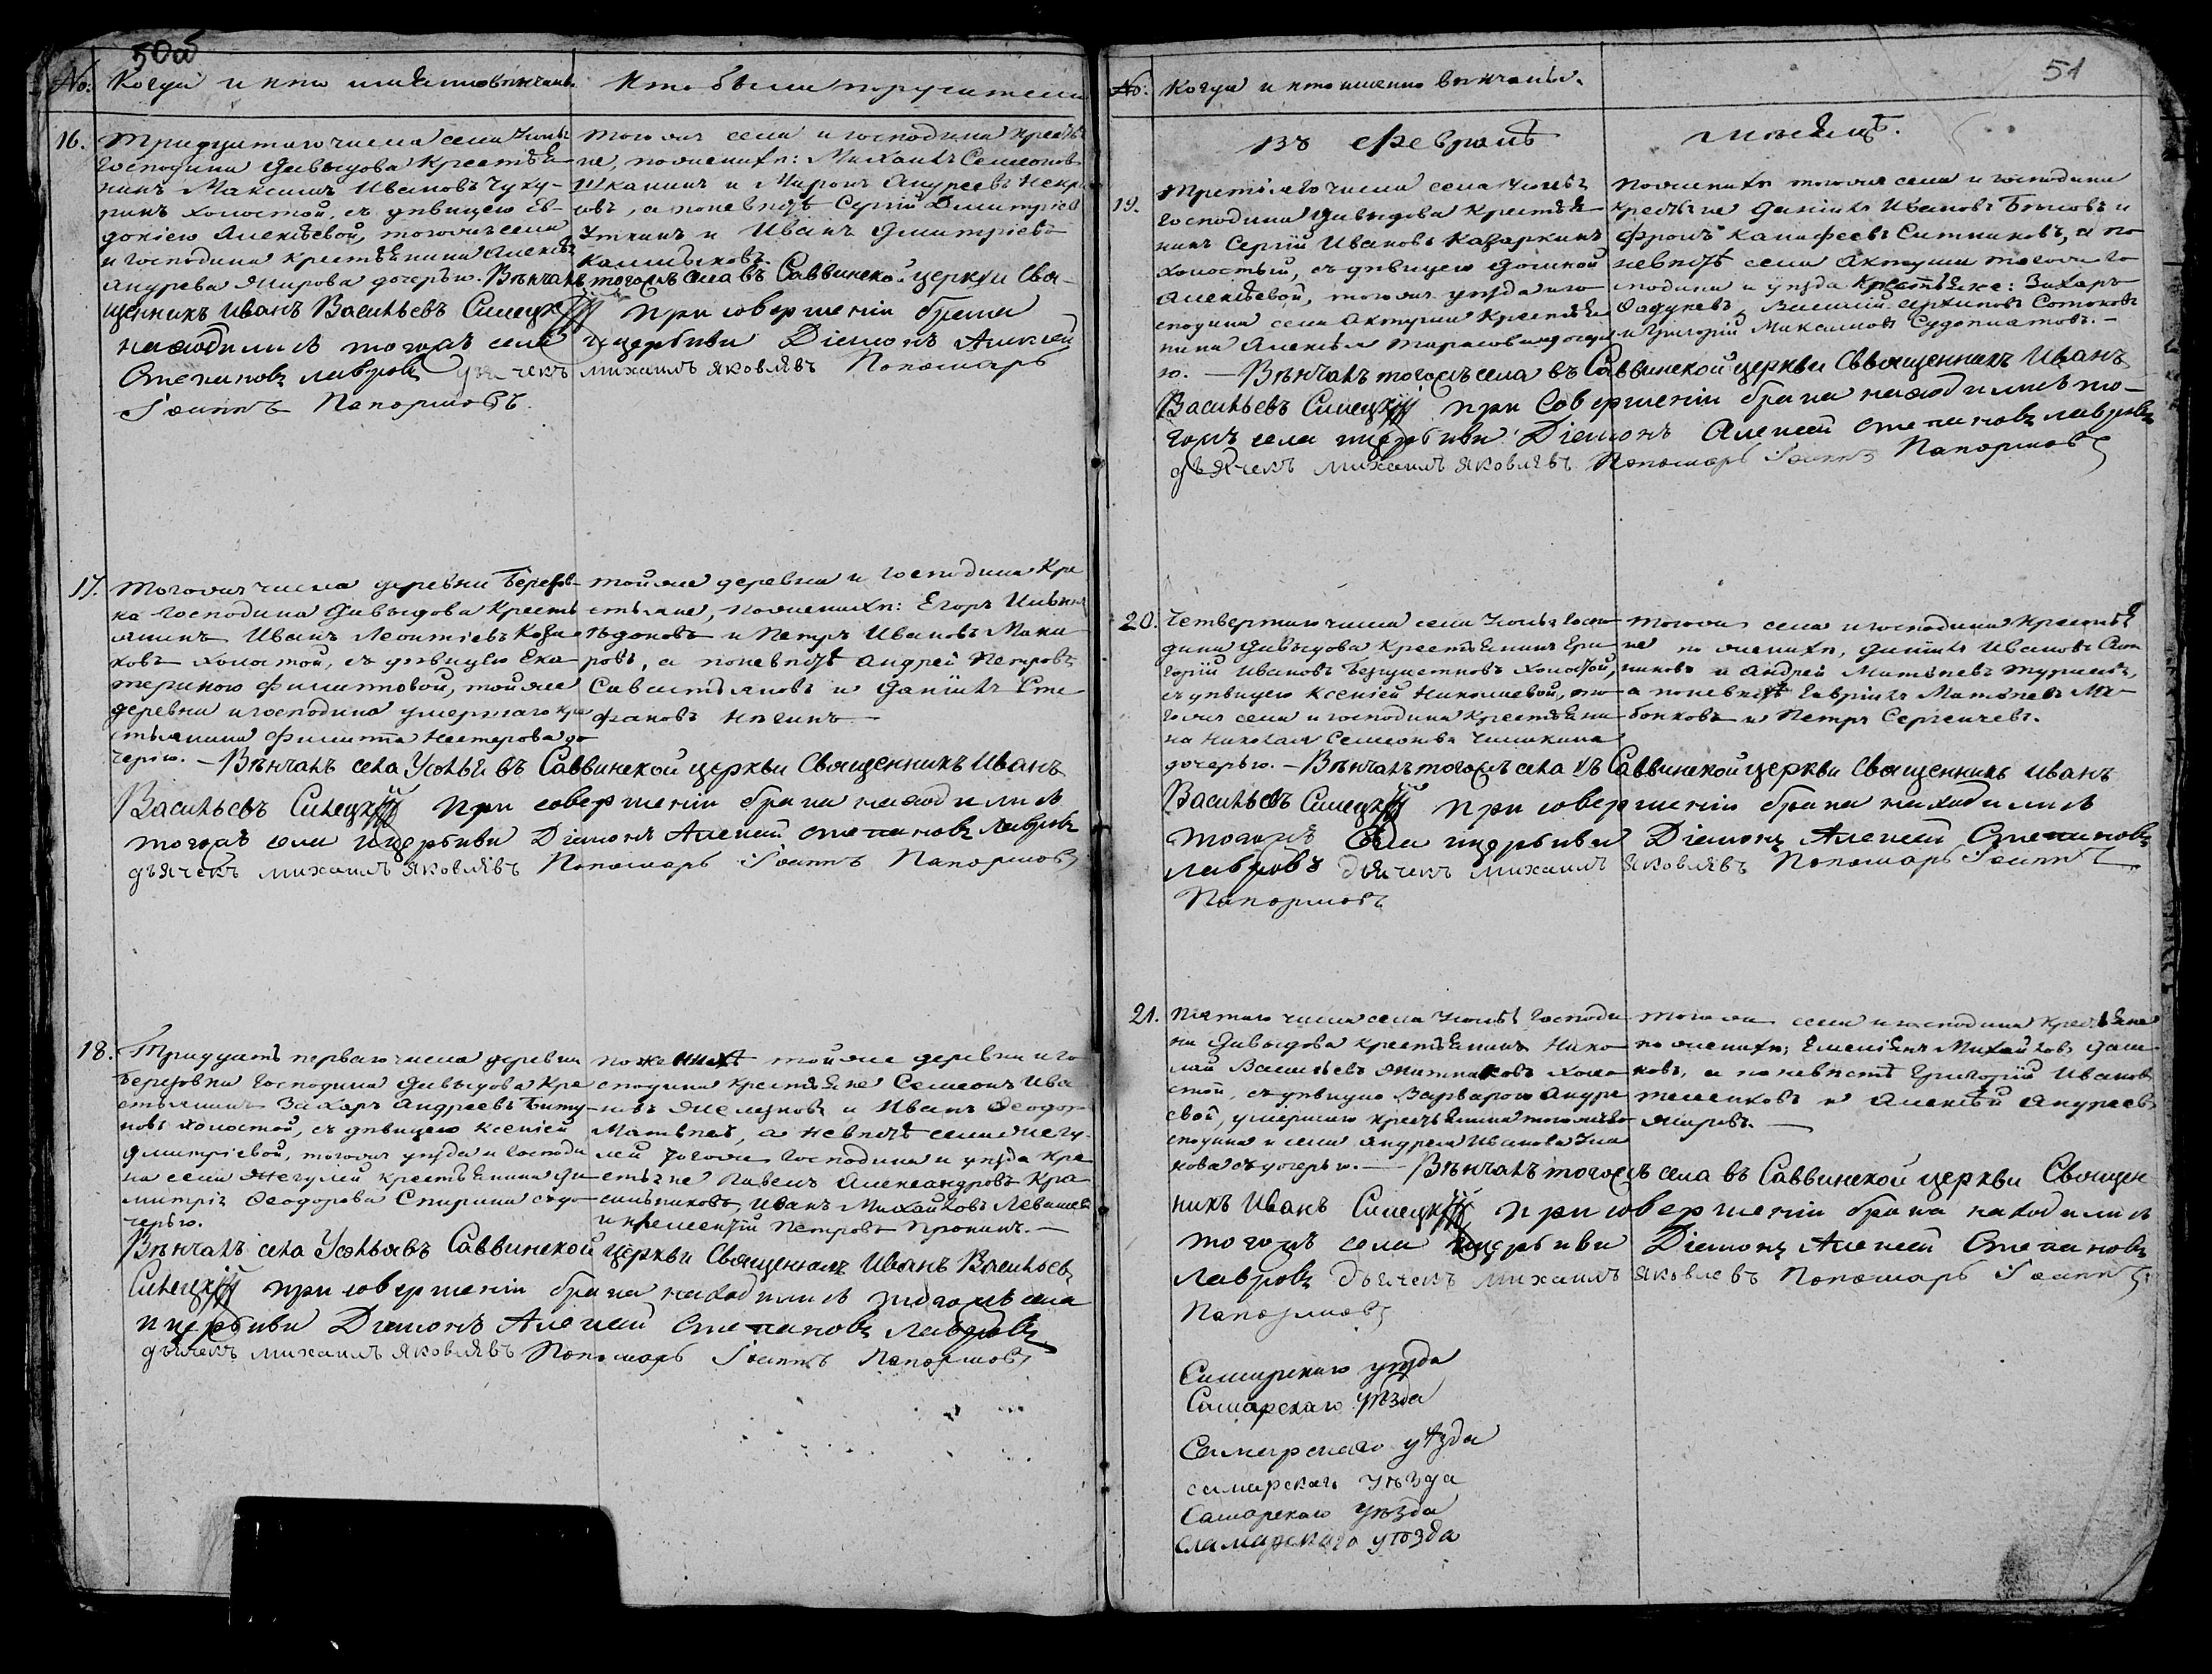 50об
№: Когда и кто имѣнно вѣнчаны.
Кто были поручители
16. Тридцатаго числа села Усолья
Господина Давыдова крестья-
нинъ Максимъ Ивановъ Чуку-
ринъ холостой, съ дѣвицею Ев-
докіею Алексѣевой, тогожъ села
и господина крестьянина Алексѣя
Андреева Жирова дочерью. Вѣнчалъ тогожъ села въ Саввинской церкви Свя-
щенникъ Иванъ Васильевъ Силецкій При совершеніи брака
находились тогожъ села и церькви Діаконъ Алексей
Степановъ Лавровъ дьячекъ Михаилъ Яковлевъ Пономарь
Іоаннъ Папормовъ
тогожъ села и господина крестья
не, по женихѣ: Михаилъ Семеоновъ
Шканинъ и Миронъ Андреевъ Некра
совъ, а по невѣстѣ Сергій Дмитріевъ
Уткинъ и Иванъ Дмитріевъ
Калмыковъ.
17. Тогожъ числа деревни Березов-
ка господина Давыдова кресть
янинъ Иванъ Леонтіевъ Коза-
ковъ холостой, съ дѣвицею Ека-
териною Филипповой, той же
деревни и господина умершаго кре
стьянина Филиппа Нестерова до
черью. — Вѣнчалъ села Усолья въ Саввинской церкви Священникъ Иванъ
Васильевъ Силецкій При совершеніи брака находились
тогожъ села и церькви Діаконъ Алексей Степановъ Лавровъ
дьячекъ Михаилъ Яковлевъ Пономарь Іоаннъ Папормовъ
той же деревни и господина кре
стьяне, по женихѣ: Егоръ
и Петръ Ивановъ Мака-
ровъ, а по невѣстѣ Андрей Петровъ
Савастьяновъ и Даніилъ Сте
фановъ —
18. Тридцать перваго числа деревни
Березовки господина Давыдова кре
стьянинъ Захаръ Андреевъ Биту-
новъ холостой, съ дѣвицею Ксеніей
Дмитріевой, тогожъ уѣзда и господи
на села Жегулей крестьянина Ди
митрія Ѳеодорова Спирина съ до
черью.
Вѣнчалъ села Усолья въ Саввинской церкви Священникъ Иванъ Васильевъ
Силецкій При совершеніи брака находились тогожъ села
и церькви Діаконъ Алексей Степановъ Лавровъ
дьячекъ Михаилъ Яковлевъ Пономарь Іоаннъ Папормовъ
по женихѣ той же деревни и го
сподина крестьяне Семеонъ Ива
новъ Желѣзновъ и Иванъ Ѳеодор
Матвѣевъ, а невѣстѣ села Жегу-
лей тогоже господина и уѣзда кре
стьяне Павелъ Александровъ Кра
сильниковъ, Иванъ Михайловъ Левашевъ
и Климентій Петровъ Пронинъ. —
51
№: Когда и кто имянно вѣнчаны.
Въ Февралѣ мѣсяцѣ.
19. Третьяго числа села Усолья
Господина Давыдова крестья-
нинъ Сергій Ивановъ Казаркинъ
холостый, съ дѣвицею Домной
Алексѣевой, тогожъ уѣзда и го
сподина села Актуши крестьян
нина Алексѣя Тарасова дочер
ю. — Вѣнчалъ тогожъ села въ Саввинской церкви Священникъ Иванъ
Васильевъ Силецкій При Совершеніи брака находились то-
гожъ села и церькви Діаконъ Алексей Степановъ Лавровъ
дьячекъ Михаилъ Яковлевъ Пономарь Іоаннъ Папормовъ
по женихѣ тогожъ села и господина
крестьяне Даніилъ Ивановъ Бѣловъ и
Фролъ Калифеевъ Ситниковъ, а по
невѣстѣ села Актуши тогожъ го
сподина и уѣзда крестьяне: Захаръ
Василій Архиповъ
и Григорій Максимовъ Судоплатовъ. —
20. Четвертаго числа села Усолья госпо
дина Давыдова крестьянинъ Гри
горій Ивановъ холостой,
съ дѣвицею Ксеніей Николаевой, то
гожъ села и господина крестьяни
на Николая Семеонова Чиликина
дочерью. — Вѣнчалъ тогожъ села въ Саввинской церкви Священникъ Иванъ
Васильевъ Силецкій При совершеніи брака находились
тогожъ Села и церькви Діаконъ Алексей Степановъ
Лавровъ дьячекъ Михаилъ Яковлевъ Пономарь Іоаннъ
Папормовъ
тогожъ села и господина крестья
не по женихѣ, Даніилъ Ивановъ
и Андрей Матвѣевъ
а по невѣстѣ Гавріилъ Матвѣевъ
и Петръ Сергеичевъ.
21. Пятаго числа села Усолья господи
на Давыдова крестьянинъ Нико
лай Васильевъ Житняковъ холо
стой, съ дѣвицею Варварою Андре
евой, умершаго крестьянина тогожъ го
сподина и села Андрея Иванова
съ дочерью. — Вѣнчалъ тогожъ села въ Саввинской церкви Священ
никъ Иванъ Силецкій При совершеніи брака находились
тогожъ села и церькви Діаконъ Алексей Степановъ
Лавровъ дьячекъ Михаилъ Яковлевъ Пономарь Іоаннъ
Папормовъ
тогоже села и господина крестьяне
по женихѣ; Емеліанъ Михайловъ
а по невѣстѣ Григорій Ивановъ
и Алексѣй Андреевъ
Жировъ. —
Самарскаго уѣзда
Самарскаго уѣзда
Самарскаго уѣзда
самарскаго уѣзда
Самарскаго уѣзда
Самарскаго уѣзда